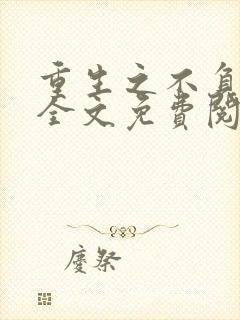 重生之不负
全文免費閱
慶祭